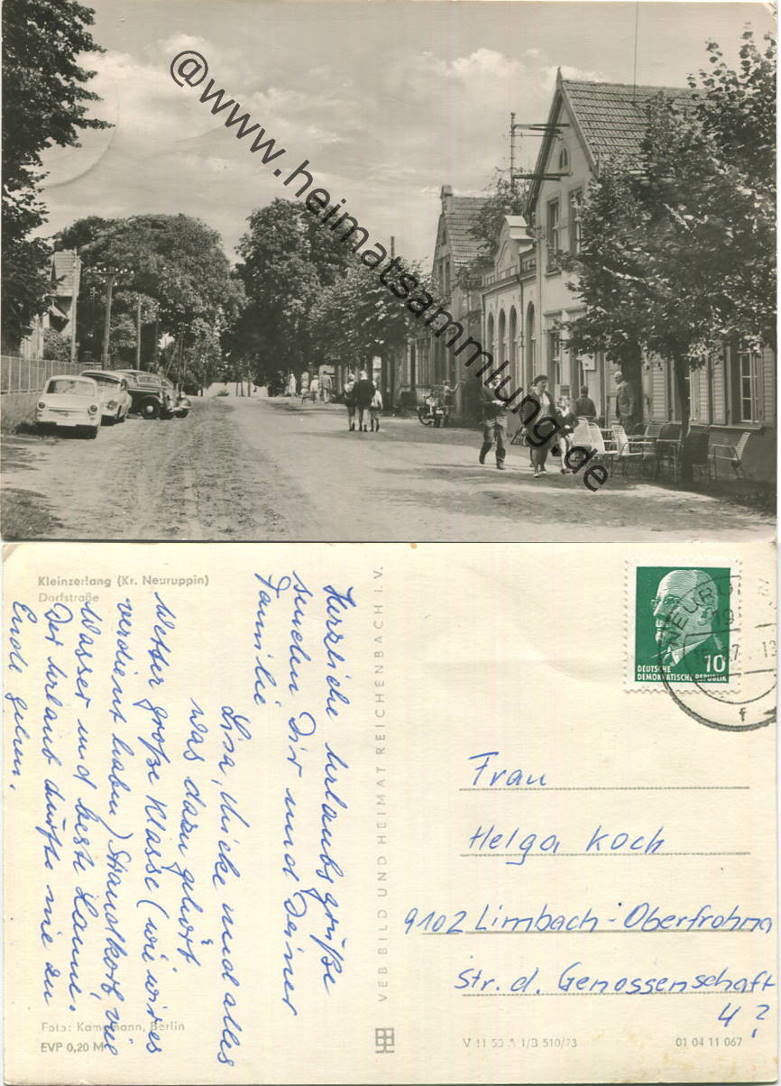 @www.heimatsammlung.de
Kleinzerlang (Kr. Neuruppin)
Dorfstraße
Herzliche Urlaubsgrüße
senden Dir und Deiner
Familie
Lisa, Micke und alles
was dazu gehört
Wetter große Klasse (wie wir es
verdient haben) Strandkorb, viel
Wasser und beste Laune.
Der Urlaub dürfte nie zu
Ende gehen.
Foto: Kampmann, Berlin
EVP 0,20 M
VEB BILD UND HEIMAT REICHENBACH I. V.
V 11 50 A 1/B 510/73
01 04 11 067
DEUTSCHE
DEMOKRATISCHE REPUBLIK
10
NEURU
f
Frau
Helga Koch
9102 Limbach-Oberfrohna
Str. d. Genossenschaft
4?